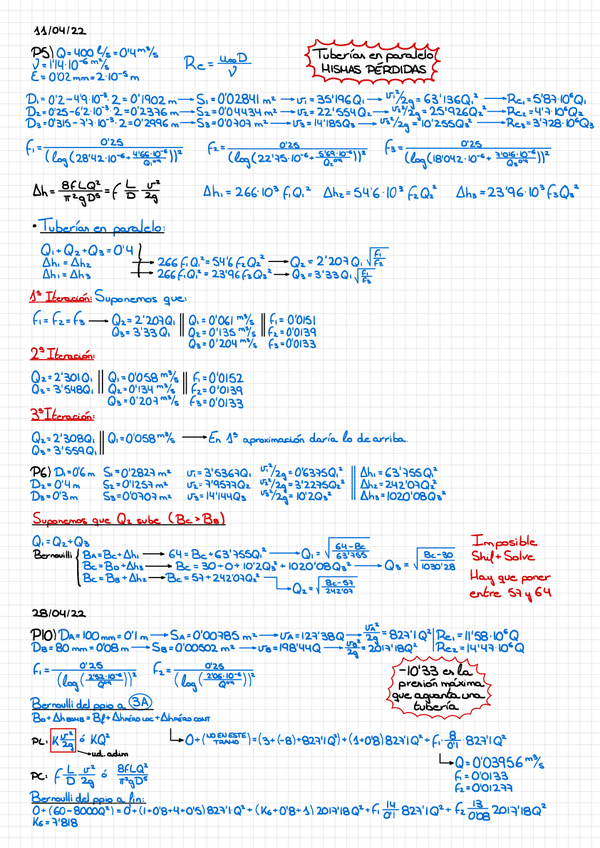 11/04/22
P5) Q = 400 l/s = 0'4 m³/s
ν = 1'14·10⁻⁶ m²/s
ε = 0'02 mm = 2·10⁻⁵ m
Re = u∞D/ν
Tuberías en paralelo
MISMAS PÉRDIDAS
D₁ = 0'2 - 4'9·10⁻³·2 = 0'1902 m → S₁ = 0'02841 m² → v₁ = 35'196Q₁ → v₁²/2g = 63'136Q₁² → Re₁ = 5'87·10⁶Q₁
D₂ = 0'25 - 6'2·10⁻³·2 = 0'2376 m → S₂ = 0'04434 m² → v₂ = 22'554Q₂ → v₂²/2g = 25'926Q₂² → Re₂ = 4'7·10⁶Q₂
D₃ = 0'315 - 7'7·10⁻³·2 = 0'2996 m → S₃ = 0'0707 m² → v₃ = 14'185Q₃ → v₃²/2g = 10'255Q₃² → Re₃ = 3'728·10⁶Q₃
f₁ = 0'25/(log(28'42·10⁻⁶ + 4'66·10⁻⁶/Q₁⁰'⁹))² f₂ = 0'25/(log(22'75·10⁻⁶ + 5'69·10⁻⁶/Q₂⁰'⁹))² f₃ = 0'25/(log(18'042·10⁻⁶ + 7'016·10⁻⁶/Q₃⁰'⁹))²
Δh = 8fLQ²/π²gD⁵ = f L/D v²/2g Δh₁ = 266·10³ f₁Q₁² Δh₂ = 54'6·10³ f₂Q₂² Δh₃ = 23'96·10³ f₃Q₃²
• Tuberías en paralelo:
Q₁ + Q₂ + Q₃ = 0'4
Δh₁ = Δh₂ → 266f₁Q₁² = 54'6f₂Q₂² → Q₂ = 2'207Q₁√(f₁/f₂)
Δh₁ = Δh₃ → 266f₁Q₁² = 23'96f₃Q₃² → Q₃ = 3'33Q₁√(f₁/f₃)
1ª Iteración: Suponemos que:
f₁ = f₂ = f₃ → Q₂ = 2'207Q₁ || Q₁ = 0'061 m³/s || f₁ = 0'0151
Q₃ = 3'33Q₁ || Q₂ = 0'135 m³/s || f₂ = 0'0139
Q₃ = 0'204 m³/s f₃ = 0'0133
2ª Iteración:
Q₂ = 2'301Q₁ || Q₁ = 0'058 m³/s || f₁ = 0'0152
Q₃ = 3'548Q₁ || Q₂ = 0'134 m³/s || f₂ = 0'0139
Q₃ = 0'207 m³/s f₃ = 0'0133
3ª Iteración:
Q₂ = 2'308Q₁ || Q₁ = 0'058 m³/s → En 1ª aproximación daría lo de arriba.
Q₃ = 3'559Q₁
P6) D₁ = 0'6 m S₁ = 0'2827 m² v₁ = 3'5367Q₁ v₁²/2g = 0'6375Q₁² || Δh₁ = 63'755Q₁²
D₂ = 0'4 m S₂ = 0'1257 m² v₂ = 7'9577Q₂ v₂²/2g = 3'2275Q₂² || Δh₂ = 242'07Q₂²
D₃ = 0'3 m S₃ = 0'0707 m² v₃ = 14'144Q₃ v₃²/2g = 10'2Q₃² || Δh₃ = 1020'08Q₃²
Suponemos que Q₂ sube (Bc > BB)
Q₁ = Q₂ + Q₃
Bernoulli { BA = Bc + Δh₁ → 64 = Bc + 63'755Q₁² → Q₁ = √(64-Bc/63'755)
Bc = BD + Δh₃ → Bc = 30 + 0 + 10'2Q₃² + 1020'08Q₃² → Q₃ = √(Bc-30/1030'28)
Bc = BB + Δh₂ → Bc = 57 + 242'07Q₂² → Q₂ = √(Bc-57/242'07)
Imposible
Shif + Solve
Hay que poner
entre 57 y 64
28/04/22
P10) DA = 100 mm = 0'1 m → SA = 0'00785 m² → vA = 127'38Q → vA²/2g = 827'1Q² | Re₁ = 11'58·10⁶Q
DB = 80 mm = 0'08 m → SB = 0'00502 m² → vB = 198'44Q → vB²/2g = 2017'18Q² | Re₂ = 14'47·10⁶Q
f₁ = 0'25/(log(2'52·10⁻⁶/Q⁰'⁹))² f₂ = 0'25/(log(2'06·10⁻⁶/Q⁰'⁹))²
-10'33 es la
presión máxima
que aguanta una
tubería
Bernoulli del ppio a 3A
B₀ + ΔhBOMB = Bf + ΔhPÉRD LOC + ΔhPÉRD CONT
PL: K v²/2g ó KQ²
ud. adim
→ 0 + (NO EN ESTE TRAMO) = (3 + (-8) + 827'1Q²) + (1 + 0'8)827'1Q² + f₁·8/0'1·827'1Q²
→ Q = 0'03956 m³/s
f₁ = 0'0133
f₂ = 0'01277
PC: f L/D v²/2g ó 8fLQ²/π²gD⁵
Bernoulli del ppio a fin:
0 + (60 - 8000Q²) = 0 + (1 + 0'8 + 4 + 0'5)827'1Q² + (K₆ + 0'8 + 1)2017'18Q² + f₁ 14/0'1 827'1Q² + f₂ 13/0'08 2017'18Q²
K₆ = 7'818